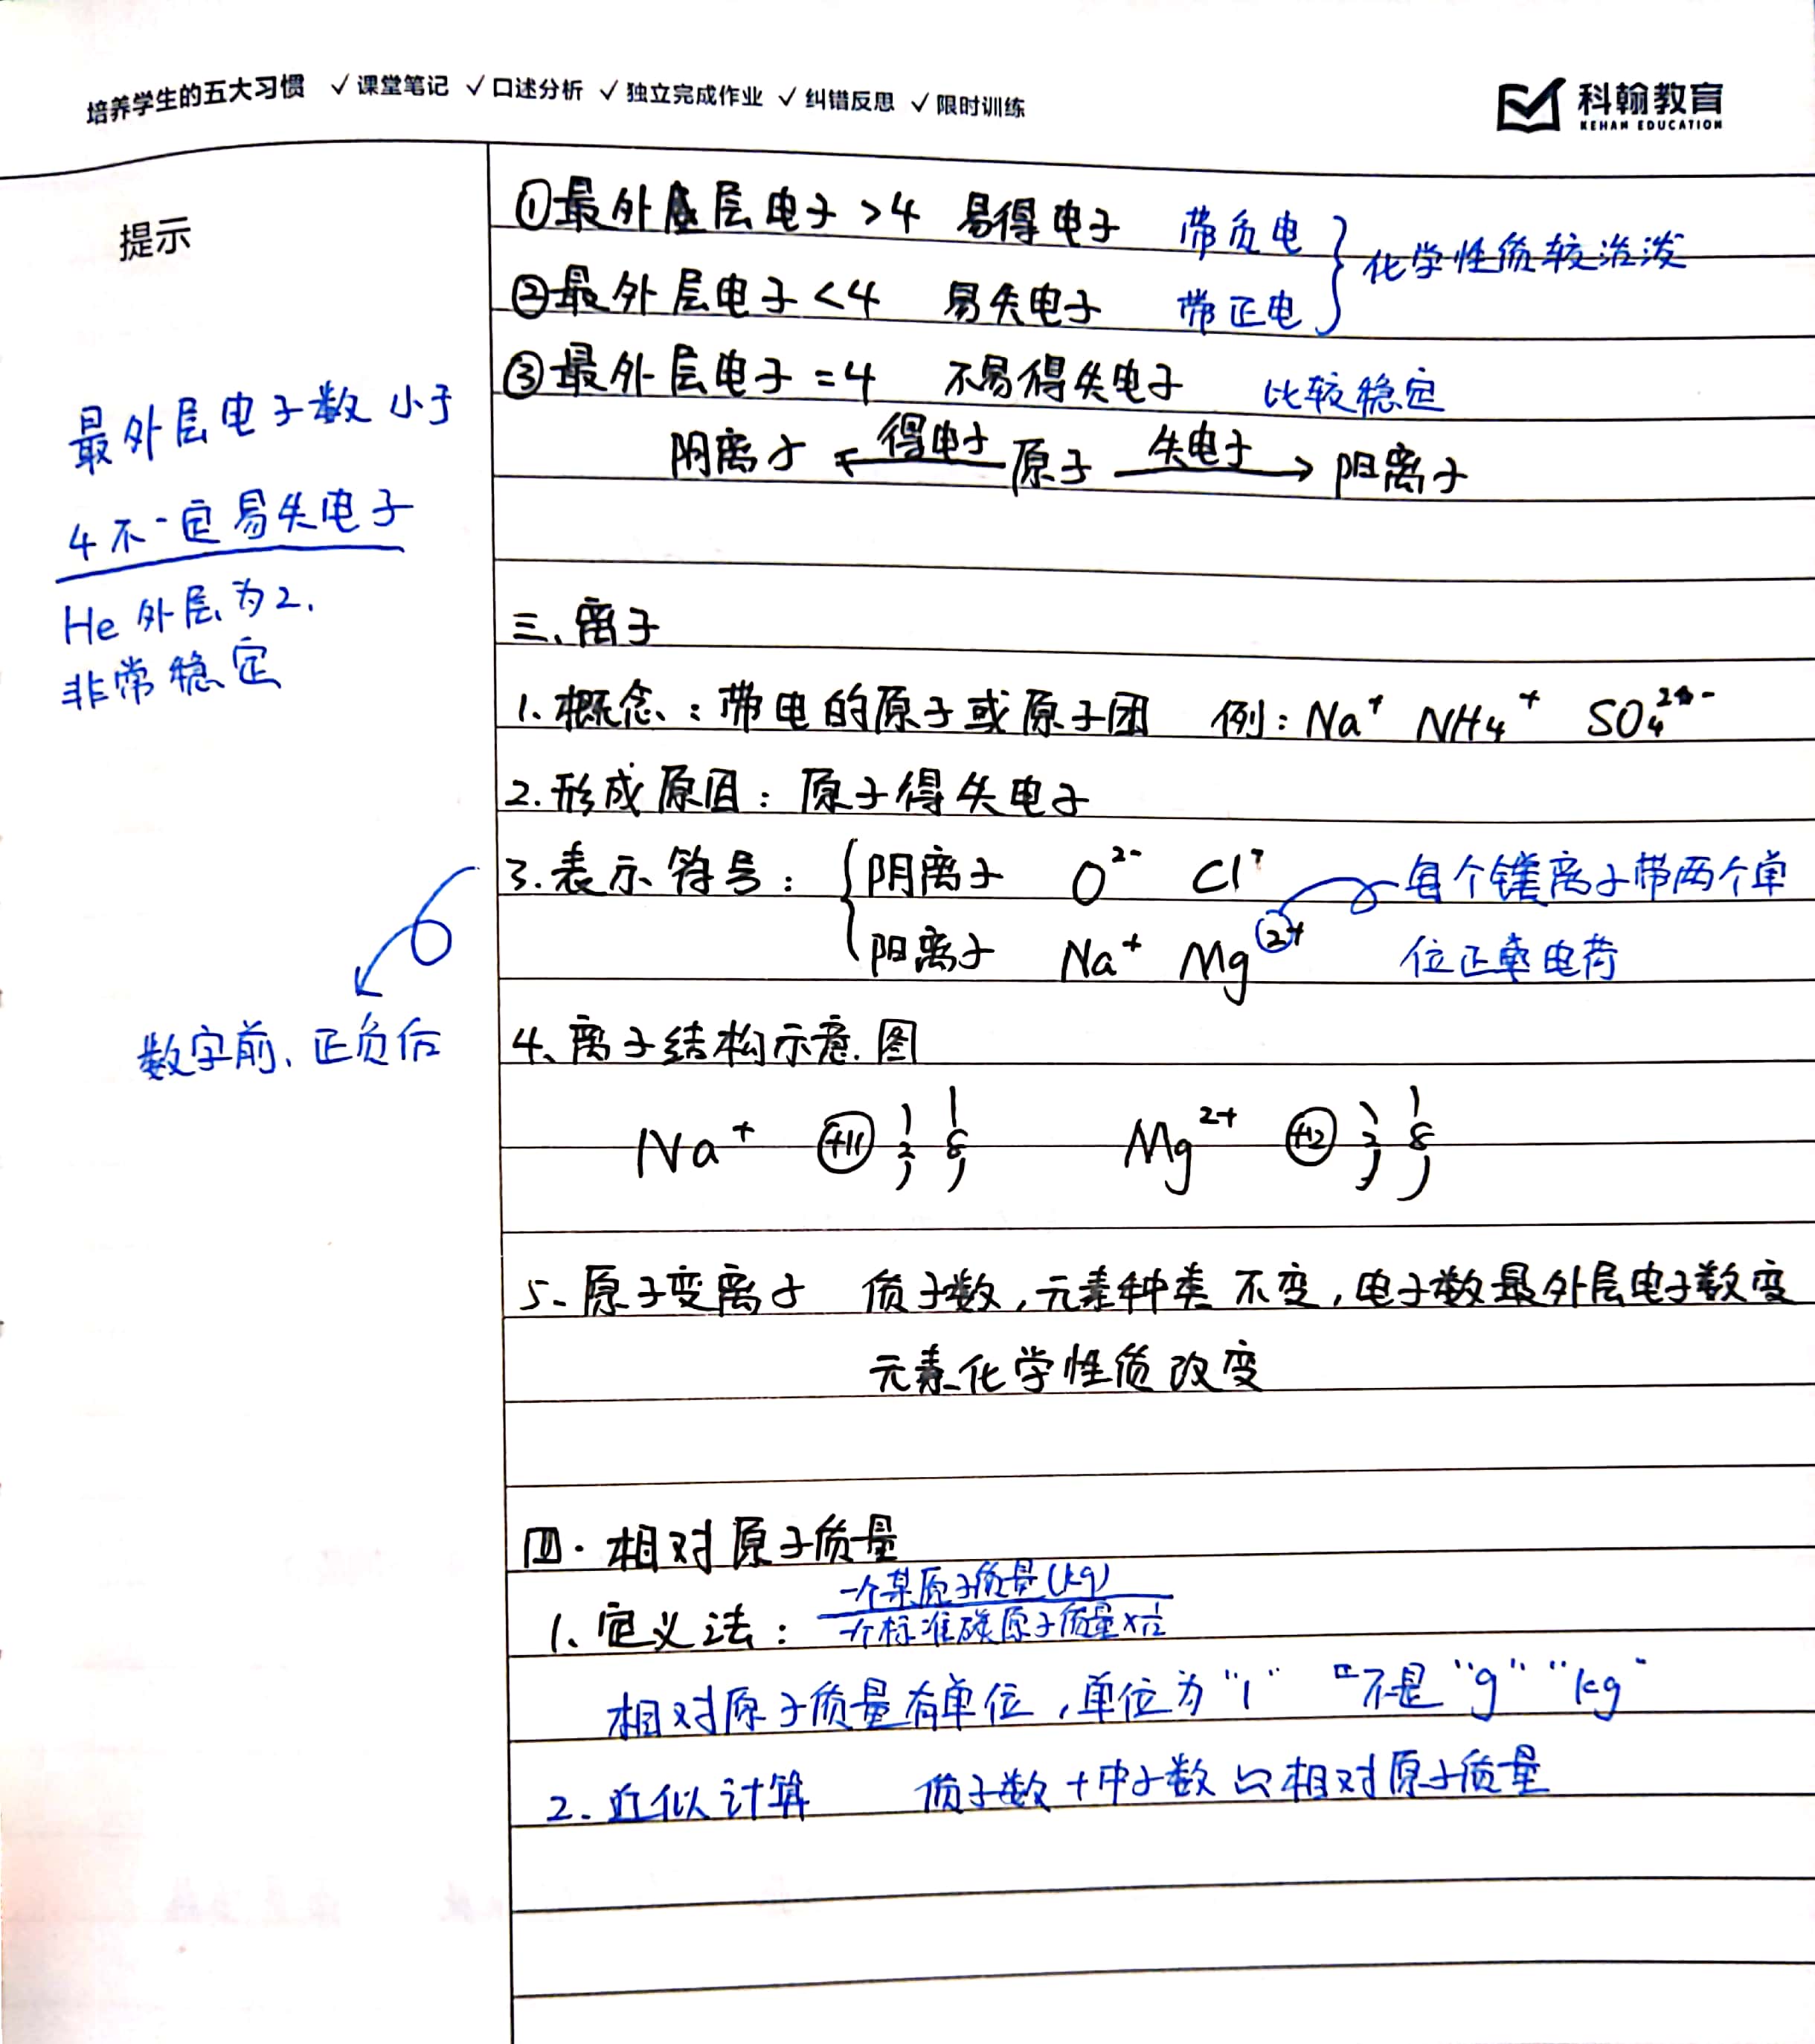 培养学生的五大习惯 ✓课堂笔记 ✓口述分析 ✓独立完成作业 ✓纠错反思 ✓限时训练
科翰教育
KEHAN EDUCATION
提示
①最外层电子>4 易得电子 带负电
②最外层电子<4 易失电子 带正电
化学性质较活泼
③最外层电子=4 不易得失电子 比较稳定
阴离子 ←得电子 原子 失电子→ 阳离子
最外层电子数小于
4不一定易失电子
He外层为2.
非常稳定
三、离子
1.概念：带电的原子或原子团 例：Na⁺ NH₄⁺ SO₄²⁻
2.形成原因：原子得失电子
3.表示符号：{阴离子 O²⁻ Cl⁻
阳离子 Na⁺ Mg²⁺
每个镁离子带两个单
位正电荷
数字前、正负后
4、离子结构示意图
Na⁺ +11 2 8 Mg²⁺ +12 2 8
5、原子变离子 质子数,元素种类不变,电子数最外层电子数变
元素化学性质改变
四.相对原子质量
1、定义法：一个某原子质量(kg)
一个标准碳原子质量×1/12
相对原子质量有单位,单位为"1" "不是"g""kg"
2.近似计算 质子数+中子数≈相对原子质量